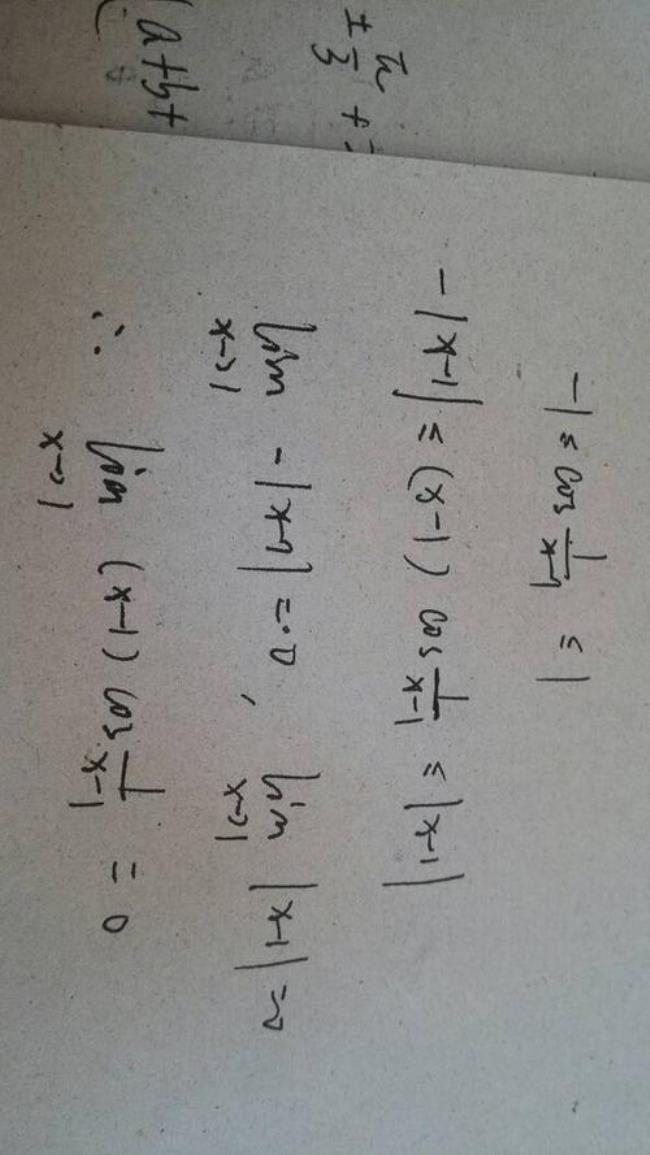 -1 ≤ cos 1/(x-1) ≤ 1
-|x-1| ≤ (x-1) cos 1/(x-1) ≤ |x-1|
lim x→1 -|x-1| = 0, lim x→1 |x-1| = 0
∴ lim x→1 (x-1) cos 1/(x-1) = 0